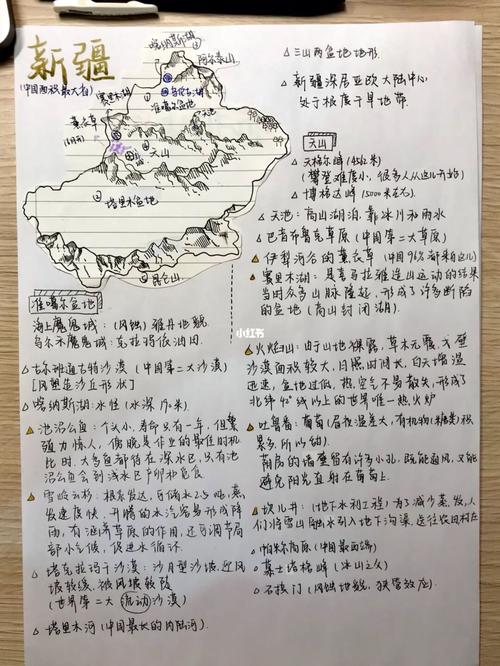 新疆
(中国面积最大省)
喀纳斯湖
阿尔泰山
赛里木湖
乌伦古湖
准噶尔盆地
薰衣草
(6月)
天池
天山
塔里木盆地
昆仑山
△ 三山两盆地地形.
△ 新疆深居亚欧大陆中心
处于极度干旱地带.
天山
△ 天格尔峰(4562米)
(攀登难度小, 很多人从这儿开始)
△ 博格达峰(5000米左右)
△ 天池: 高山湖泊, 靠冰川和雨水
△ 巴音布鲁克草原(中国第二大草原)
△ 伊犁河谷的薰衣草(中国96%都来自这儿)
△ 赛里木湖: 是喜马拉雅造山运动的结果
当时众多山脉隆起, 形成了许多断陷
的盆地(高山封闭湖).
△ 火焰山: 由于山地裸露, 草木无覆, 戈壁
沙漠面积较大, 日照时间长, 白天增温
迅速, 盆地过低, 热空气不易散失, 形成了
北纬42°线以上的世界唯一热火炉
△ 吐鲁番: 葡萄(昼夜温差大, 有机物(糖类)积
累多, 所以甜).
荫房的墙壁留有许多小孔, 既能通风, 又能
避免阳光直射在葡萄上.
△ 坎儿井: (地下水利工程) 为了减少蒸发, 人
们将雪山融水引入地下沟渠, 送往农田村庄
△ 帕米尔高原(中国最西端)
△ 慕士塔格峰(冰山之父)
△ 石接门(风蚀地貌, 狭管效应).
准噶尔盆地
海上魔鬼城: (风蚀) 雅丹地貌
乌尔禾魔鬼城: 克拉玛依油田.
△ 古尔班通古特沙漠 (中国第二大沙漠)
[风塑造沙丘形状]
△ 喀纳斯湖: 水怪 (水深190米).
△ 池沼公鱼: 个头小, 寿命只有一年, 但繁
殖力惊人, 傍晚是作业的最佳时机
比时, 大多鱼都待在深水已, 只有池
沼公鱼会到浅水已产卵和觅食
△ 雪岭云杉: 根系发达, 可储水2.5吨, 蒸
发速度快, 升腾的水汽容易形成降
雨, 有涵养草原的作用, 还可调节局
部小气候, 促进水循环.
△ 塔克拉玛干沙漠: 沙月型沙坡, 迎风
坡较缓, 被风坡较陡
(世界第二大流动沙漠)
△ 塔里木河(中国最长的内陆河).
小红书